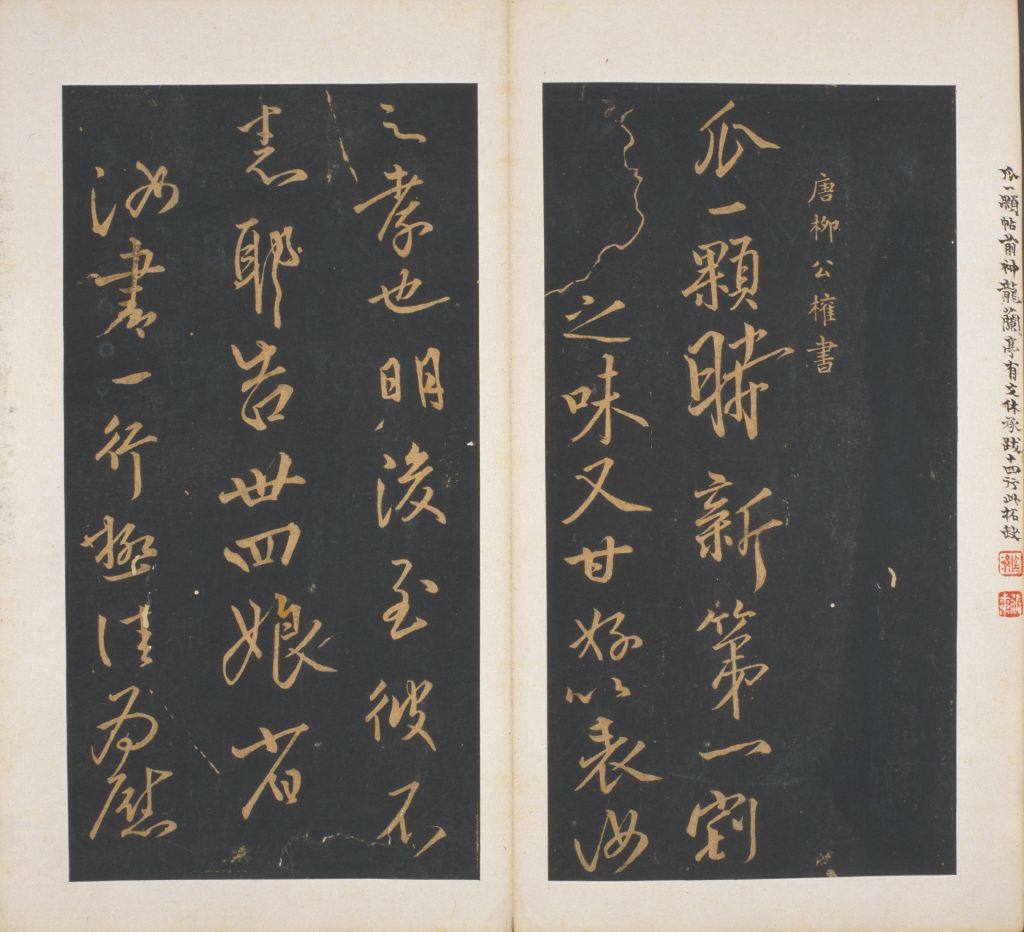 瓜一顆帖前神龍蘭亭有文休承跋十四行此拓缺
唐柳公權書
瓜一顆新第一割
之味又甘好以表汝
之孝也明後至彼不
悉耶告卅四娘省
汝書一行極佳為慰